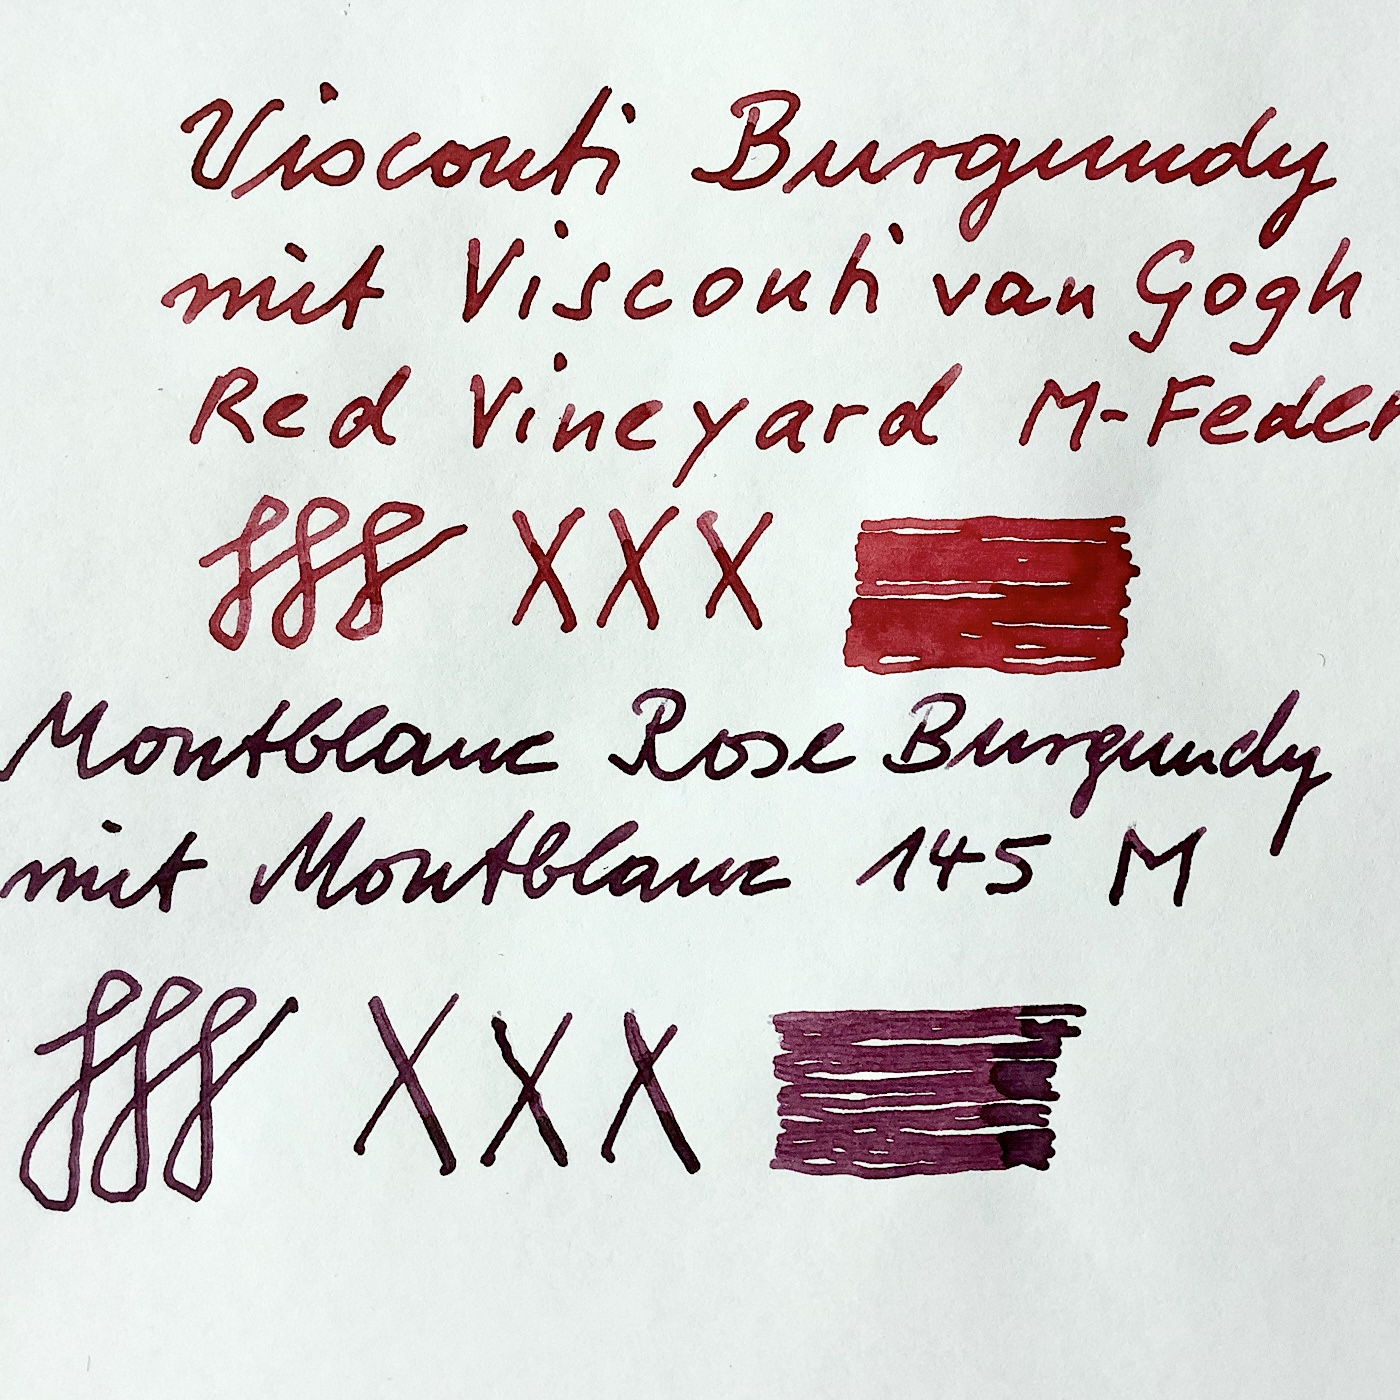 Visconti Burgundy
mit Visconti van Gogh
Red Vineyard M-Feder
fff XXX
Montblanc Rose Burgundy
mit Montblanc 145 M
fff XXX